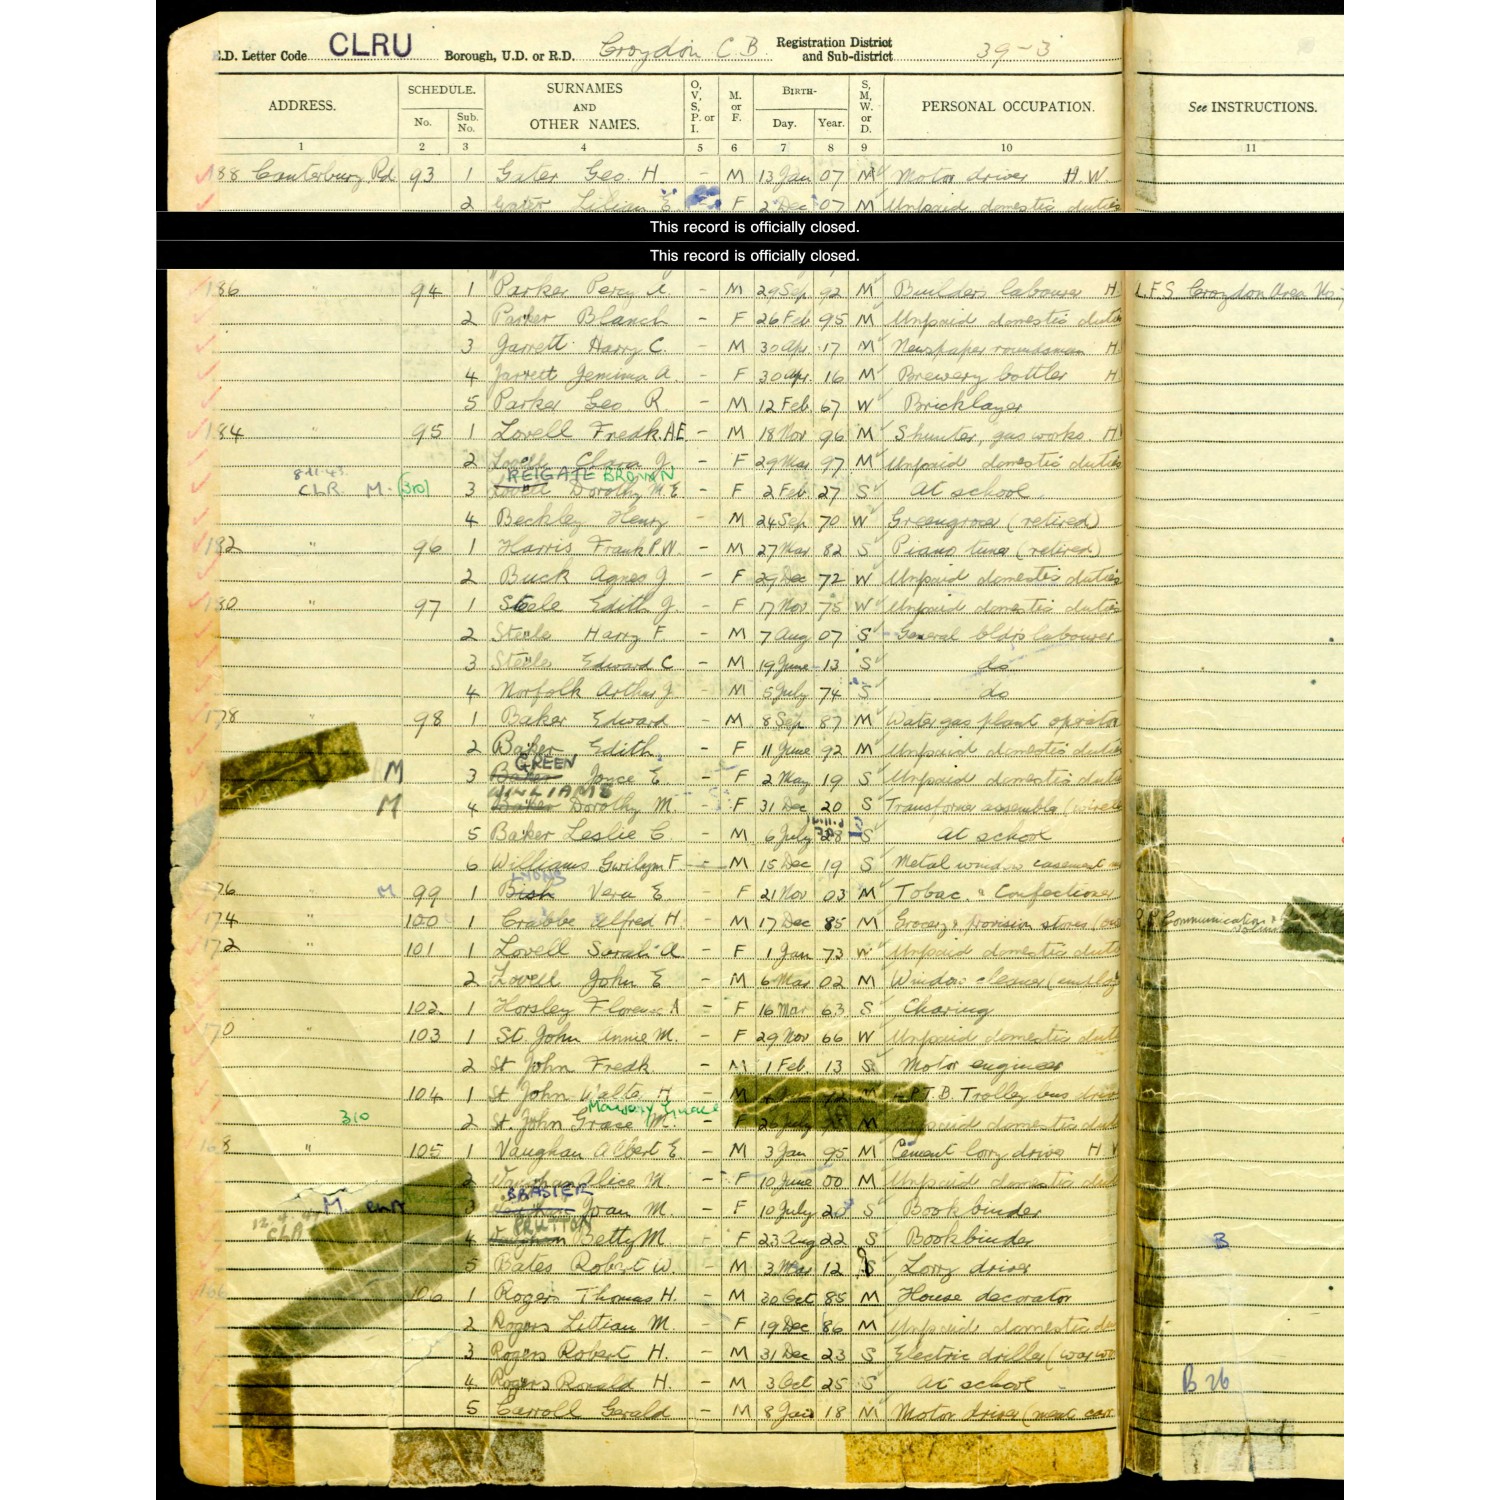 E.D. Letter Code CLRU Borough, U.D. or R.D. Croydon C.B. Registration District and Sub-district 39-3
ADDRESS. SCHEDULE. No. Sub. No. SURNAMES AND OTHER NAMES. O, V, S, P. or I. M. or F. BIRTH- Day. Year. S, M, W. or D. PERSONAL OCCUPATION. See INSTRUCTIONS.
1 2 3 4 5 6 7 8 9 10 11
188 Canterbury Rd 93 1 Gater Geo H. - M 13 Jan 07 M Motor driver H W
2 Gater Lilian E - F 2 Dec 07 M Unpaid domestic duties
This record is officially closed.
This record is officially closed.
186 " 94 1 Parker Percy A. - M 29 Sep 92 M Builders labourer H L.F.S Croydon Area
2 Parker Blanch - F 26 Feb 95 M Unpaid domestic duties
3 Garrett Harry C. - M 30 Apr. 17 M Newspaper roundsman H
4 Jarrett Jemima A. - F 30 Apr. 16 M Brewery bottler H
5 Parker Geo R. - M 12 Feb. 67 W Bricklayer
184 " 95 1 Lovell Fredk. A E - M 18 Nov 96 M Shunter, gas works. H
2 Lovell Clara J. - F 29 Mar 97 M Unpaid domestic duties
8.11.43 REIGATE BROWN
CLR. M. (310) 3 Lovell Dorothy M. E - F 2 Feb 27 S At school
4 Beckley Henry - M 24 Sep 70 W Greengrocer (retired)
182 " 96 1 Harris Frank P. W. - M 27 Mar 82 S Piano tuner (retired)
2 Buck Agnes J. - F 29 Dec 72 W Unpaid domestic duties
180 " 97 1 Steele Edith J. - F 17 Nov 75 W Unpaid domestic duties
2 Steele Harry F - M 7 Aug 07 S General bldrs labourer
3 Steele Edward C - M 19 June 13 S do
4 Norfolk Arthur J. - M 5 July 74 S do
178 " 98 1 Baker Edward - M 8 Sep 87 M Water gas plant operator
2 Baker Edith - F 11 June 92 M Unpaid domestic duties
GREEN
M 3 Baker Joyce E - F 2 May 19 S Unpaid domestic duties
WILLIAMS
M 4 Baker Dorothy M. - F 31 Dec 20 S Transformer assembler
5 Baker Leslie C. - M 6 July 28 S At school
6 Williams Gwilym F - M 15 Dec 19 S Metal window casement
LYONS
176 " M 99 1 Bish Vera E. - F 21 Nov 03 M Tobac. & Confectioner
174 " 100 1 Crabbe Alfred H. - M 17 Dec 85 M Grocery & Provision stores Communication
172 " 101 1 Lovell Sarah A - F 1 Jan 73 W Unpaid domestic duties
2 Lovell John E - M 6 Mar 02 M Window cleaner
102 1 Horsley Florence A - F 16 Mar 63 S Charing
170 " 103 1 St. John Annie M. - F 29 Nov 66 W Unpaid domestic duties
2 St John Fredk - M 1 Feb. 13 S Motor engineer
104 1 St John Walter H - M M L.P.T.B. Trolley bus driver
Grace
310 2 St. John Grace M. - F 26 July M Unpaid domestic duties
168 " 105 1 Vaughan Albert E - M 3 Jan 95 M Cement lorry driver H W
2 Vaughan Alice M - F 10 June 00 M Unpaid domestic duties
BRASIER
M. 3 Vaughan Joan M. - F 10 July 20 S Bookbinder
CLR PRUTTON
4 Vaughan Betty M - F 23 Aug 22 S Bookbinder B
5 Bates Robert W. - M 3 Mar 12 S Lorry driver
106 1 Rogers Thomas H. - M 30 Oct 85 M House decorator
2 Rogers Lillian M. - F 19 Dec 86 M Unpaid domestic
3 Rogers Robert H. - M 31 Dec 23 S Electric driller
4 Rogers Ronald H. - M 3 Oct 25 S At school - B 26
5 Carroll Gerald - M 8 Jan 18 M Motor driver